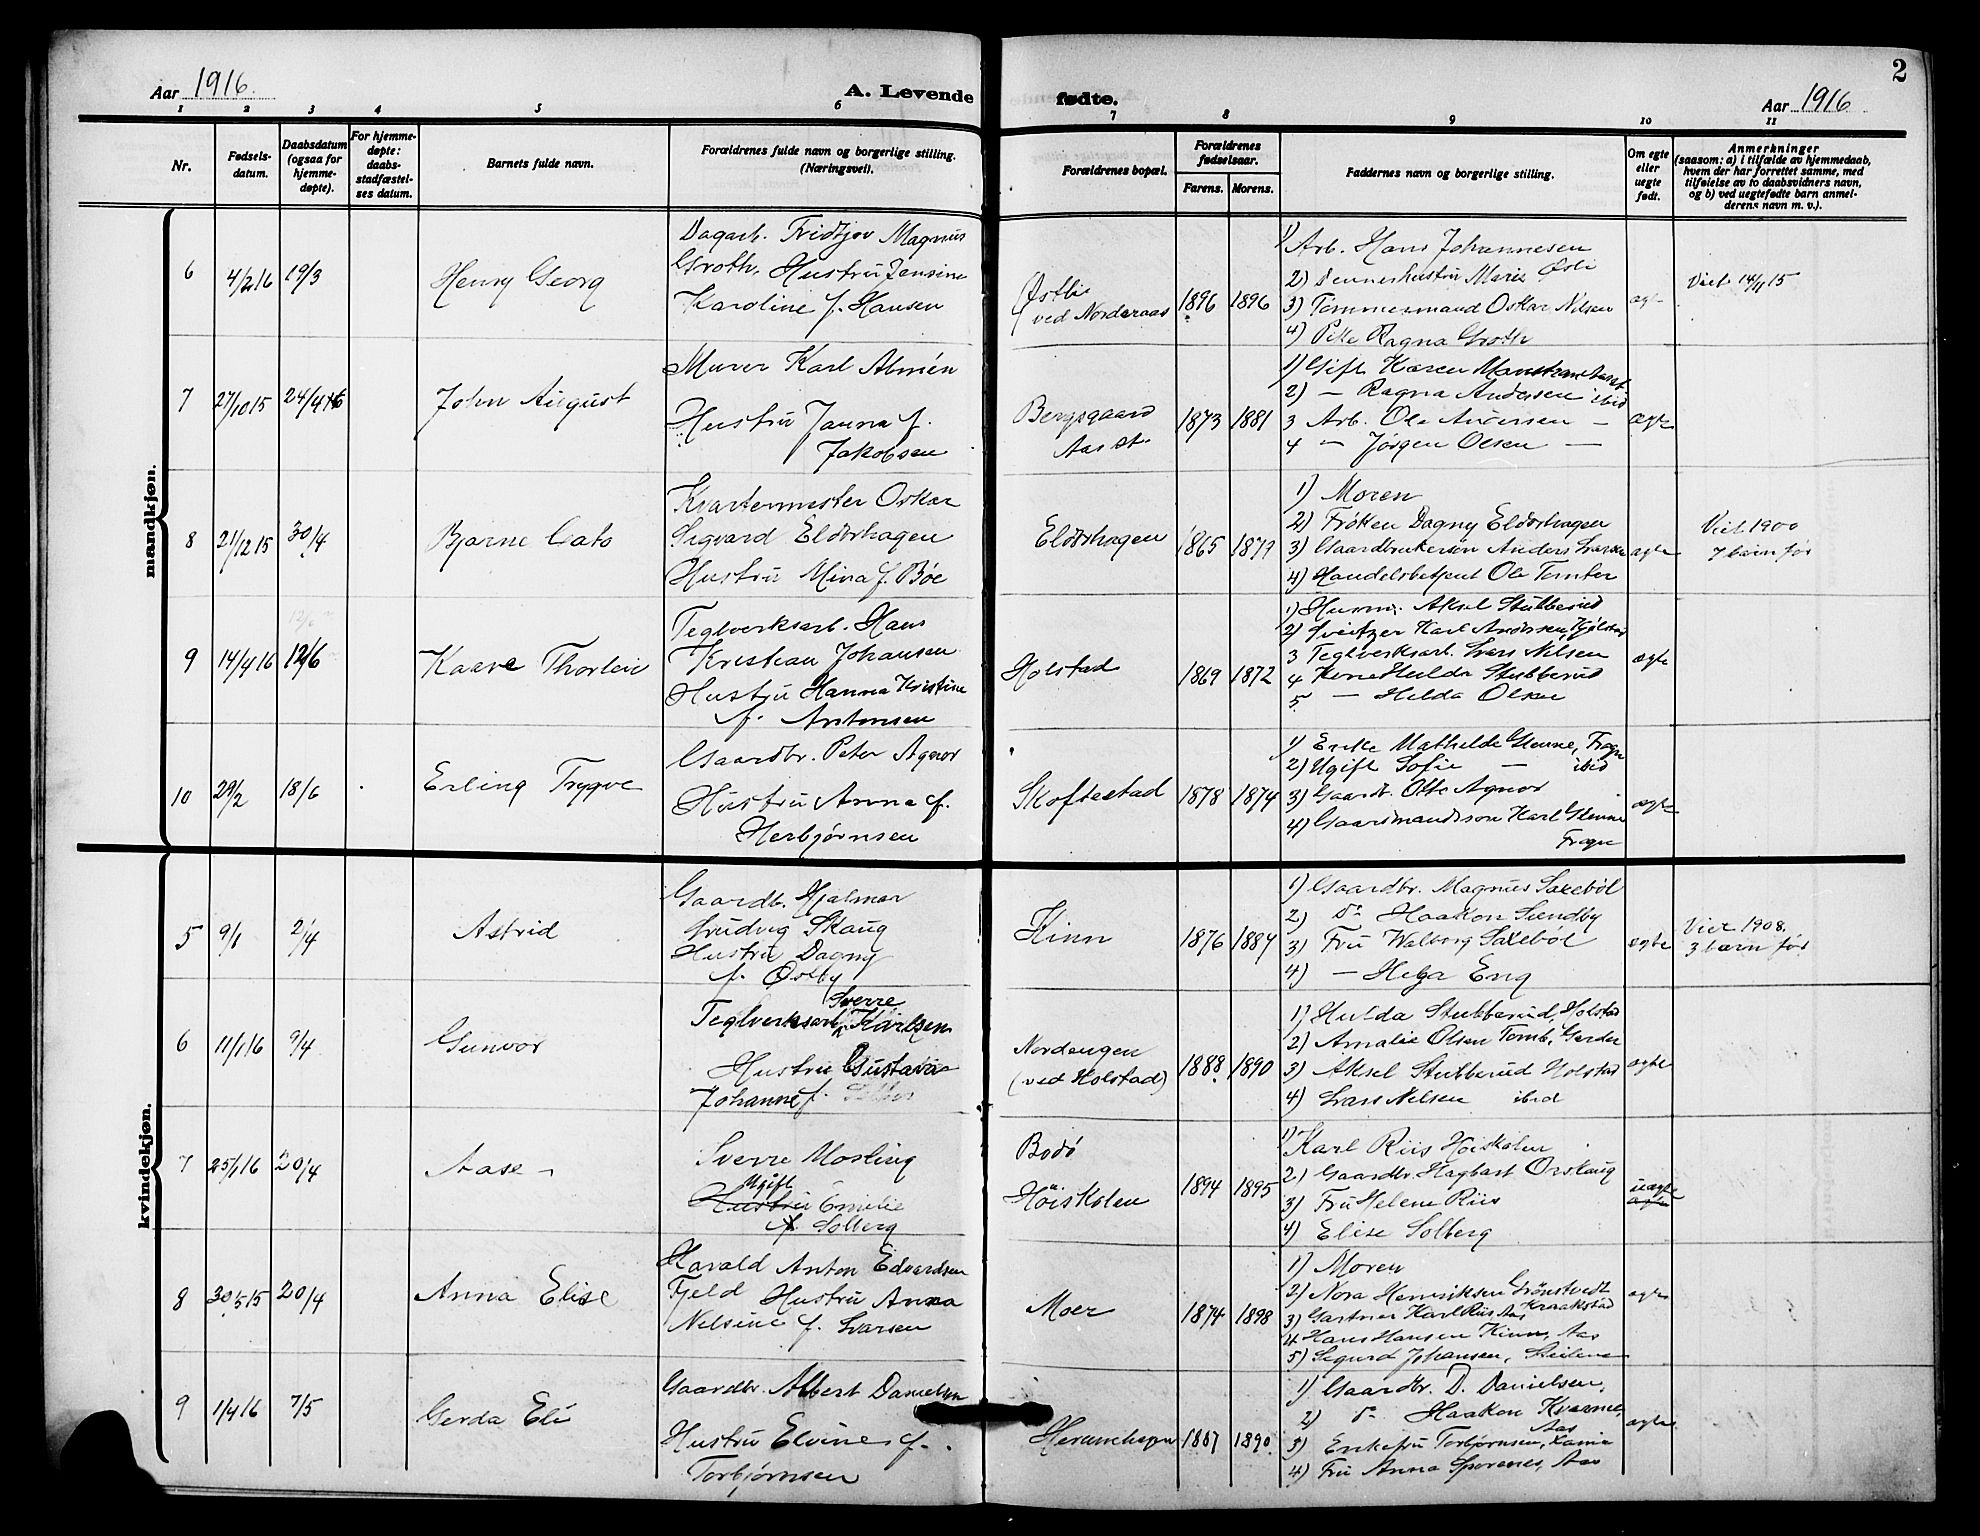 2
Aar 1916.
A. Levende
fødte.
Aar 1916
1 2 3 4 5 6
7 8 9 10 11
Nr.
Fødsels-
datum.
Daabsdatum
(ogsaa for
hjemme-
døpte).
For hjemme-
døpte:
daabs-
stadfæstel-
ses datum.
Barnets fulde navn.
Forældrenes fulde navn og borgerlige stilling.
(Næringsvei).
Forældrenes bopæl.
Forældrenes
fødselsaar.
Farens. Morens.
Faddernes navn og borgerlige stilling.
Om egte
eller
uegte
født.
Anmerkninger
(saasom: a) i tilfælde av hjemmedaab,
hvem der har forrettet samme, med
tilføielse av to daabsvidners navn,
og b) ved uegtefødte barn anmel-
derens navn m. v.).
mandkjøn.
6
4/2 16
19/3
Henry Georg
Dagarb. Fridtjov Magnus
Groth, Hustru Jensine
Karoline f. Hansen
Østlie
ved Norderaas
1896
1896
1) Arb. Hans Johannesen
2) Marie Østli
3) Tømmermand Oskar Nilsen
4) Pike Ragna Groth
egte
Viet 14/11 15
7
27/10 15
24/4 16
John August
Murer Karl Almén
Hustru Janna f.
Jakobsen
Bergsgaard
Aas st.
1873
1881
1) Gift Karen
2) — Ragna Andersen ibid
3 Arb. Ole Andersen —
4 — Jørgen Olsen —
Ægte
8
21/12 15
30/4
Bjarne Cato
Kvartermester Oskar
Sigvard Eldorhagen
Hustru Mina f. Bøe
Eldorhagen
1865
1877
1) Moren
2) Frøken Dagny Eldorhagen
3) Gaardbrukersøn Anders Larsen
4) Handelsbetjent Ole Tomter
egte
Viet 1900
7 barn før
9
14/4 16
12/6
Kaare Thorleif
Teglverksarb. Hans
Kristian Johansen
Hustru Hanna Kristine
f. Antonsen
Holstad
1869
1872
1) Aksel Stubberud
2) Sveitzer Karl Andersen, Kjølstad
3 Teglverksarb. Lars Nilsen
4 Kone Hulda Stubberud
5 — Hilda Olsen
ægte
10
29/2
18/6
Erling Trygve
Gaardbr. Peter Agnor
Hustru Anna f.
Herbjørnsen
Skoftestad
1878
1874
1) Enke Mathilde Glenne, Frogn
2) Ugift Sofie — ibid
3) Gaardb. Otto Agnor
4) Gaardmandssøn Karl Glenne
Frogn
ægte
kvindekjøn.
5
9/1
2/4
Astrid
Gaardb. Hjalmar
Ludvig Skaug
Hustru Dagny
f. Østby
Kinn
1876
1884
1) Gaardbr. Magnus Saxebøl
2) do Haakon Sundby
3) Fru Walborg Saxebøl
4) — Helga Eng
egte
Viet 1908.
3 barn før
6
11/1 16
9/4
Gunvor
Sverre
Teglverksarb. Karlsen
Hustru Gustava
Johanne f.
Nordengen
(ved Holstad)
1888
1890
1) Hulda Stubberud, Holstad
2) Amalie Olsen Tomb, Gerder
3) Aksel Stubberud Holstad
4) Lars Nilsen ibid
egte
7
25/1 16
20/4
Aase
Sverre Mosling
Ugift
Hustru Emelie
f. Solberg
Bodø
Høiskolen
1894
1895
1) Karl Riis Høiskolen
2) Gaardbr. Hagbart Orskaug
3) Fru Helene Riis
4) Elise Solberg
uegte
egte
8
30/5 15
20/4
Anna Elise
Harald Anton Edvardsen
Fjeld Hustru Anna
Nelsine f. Larsen
Moer
1874
1898
1) Moren
2) Nora Henriksen Grønstvedt
Kraakstad
3) Gartner Karl Riis Aas
4 Hans Hansen Kinn, Aas
5) Sigurd Johansen,
egte
9
1/4 16
7/5
Gerda Eli
Gaardbr. Albert Danielsen
Hustru Elvine f.
Torbjørnsen
Herumhagen
1887
1890
1) Gaardbr. D. Danielsen,
2) do Haakon Kvarme,
Aas
3) Enkefru Torbjørnsen,
4) Fru Anna Sporenes, Aas
egte